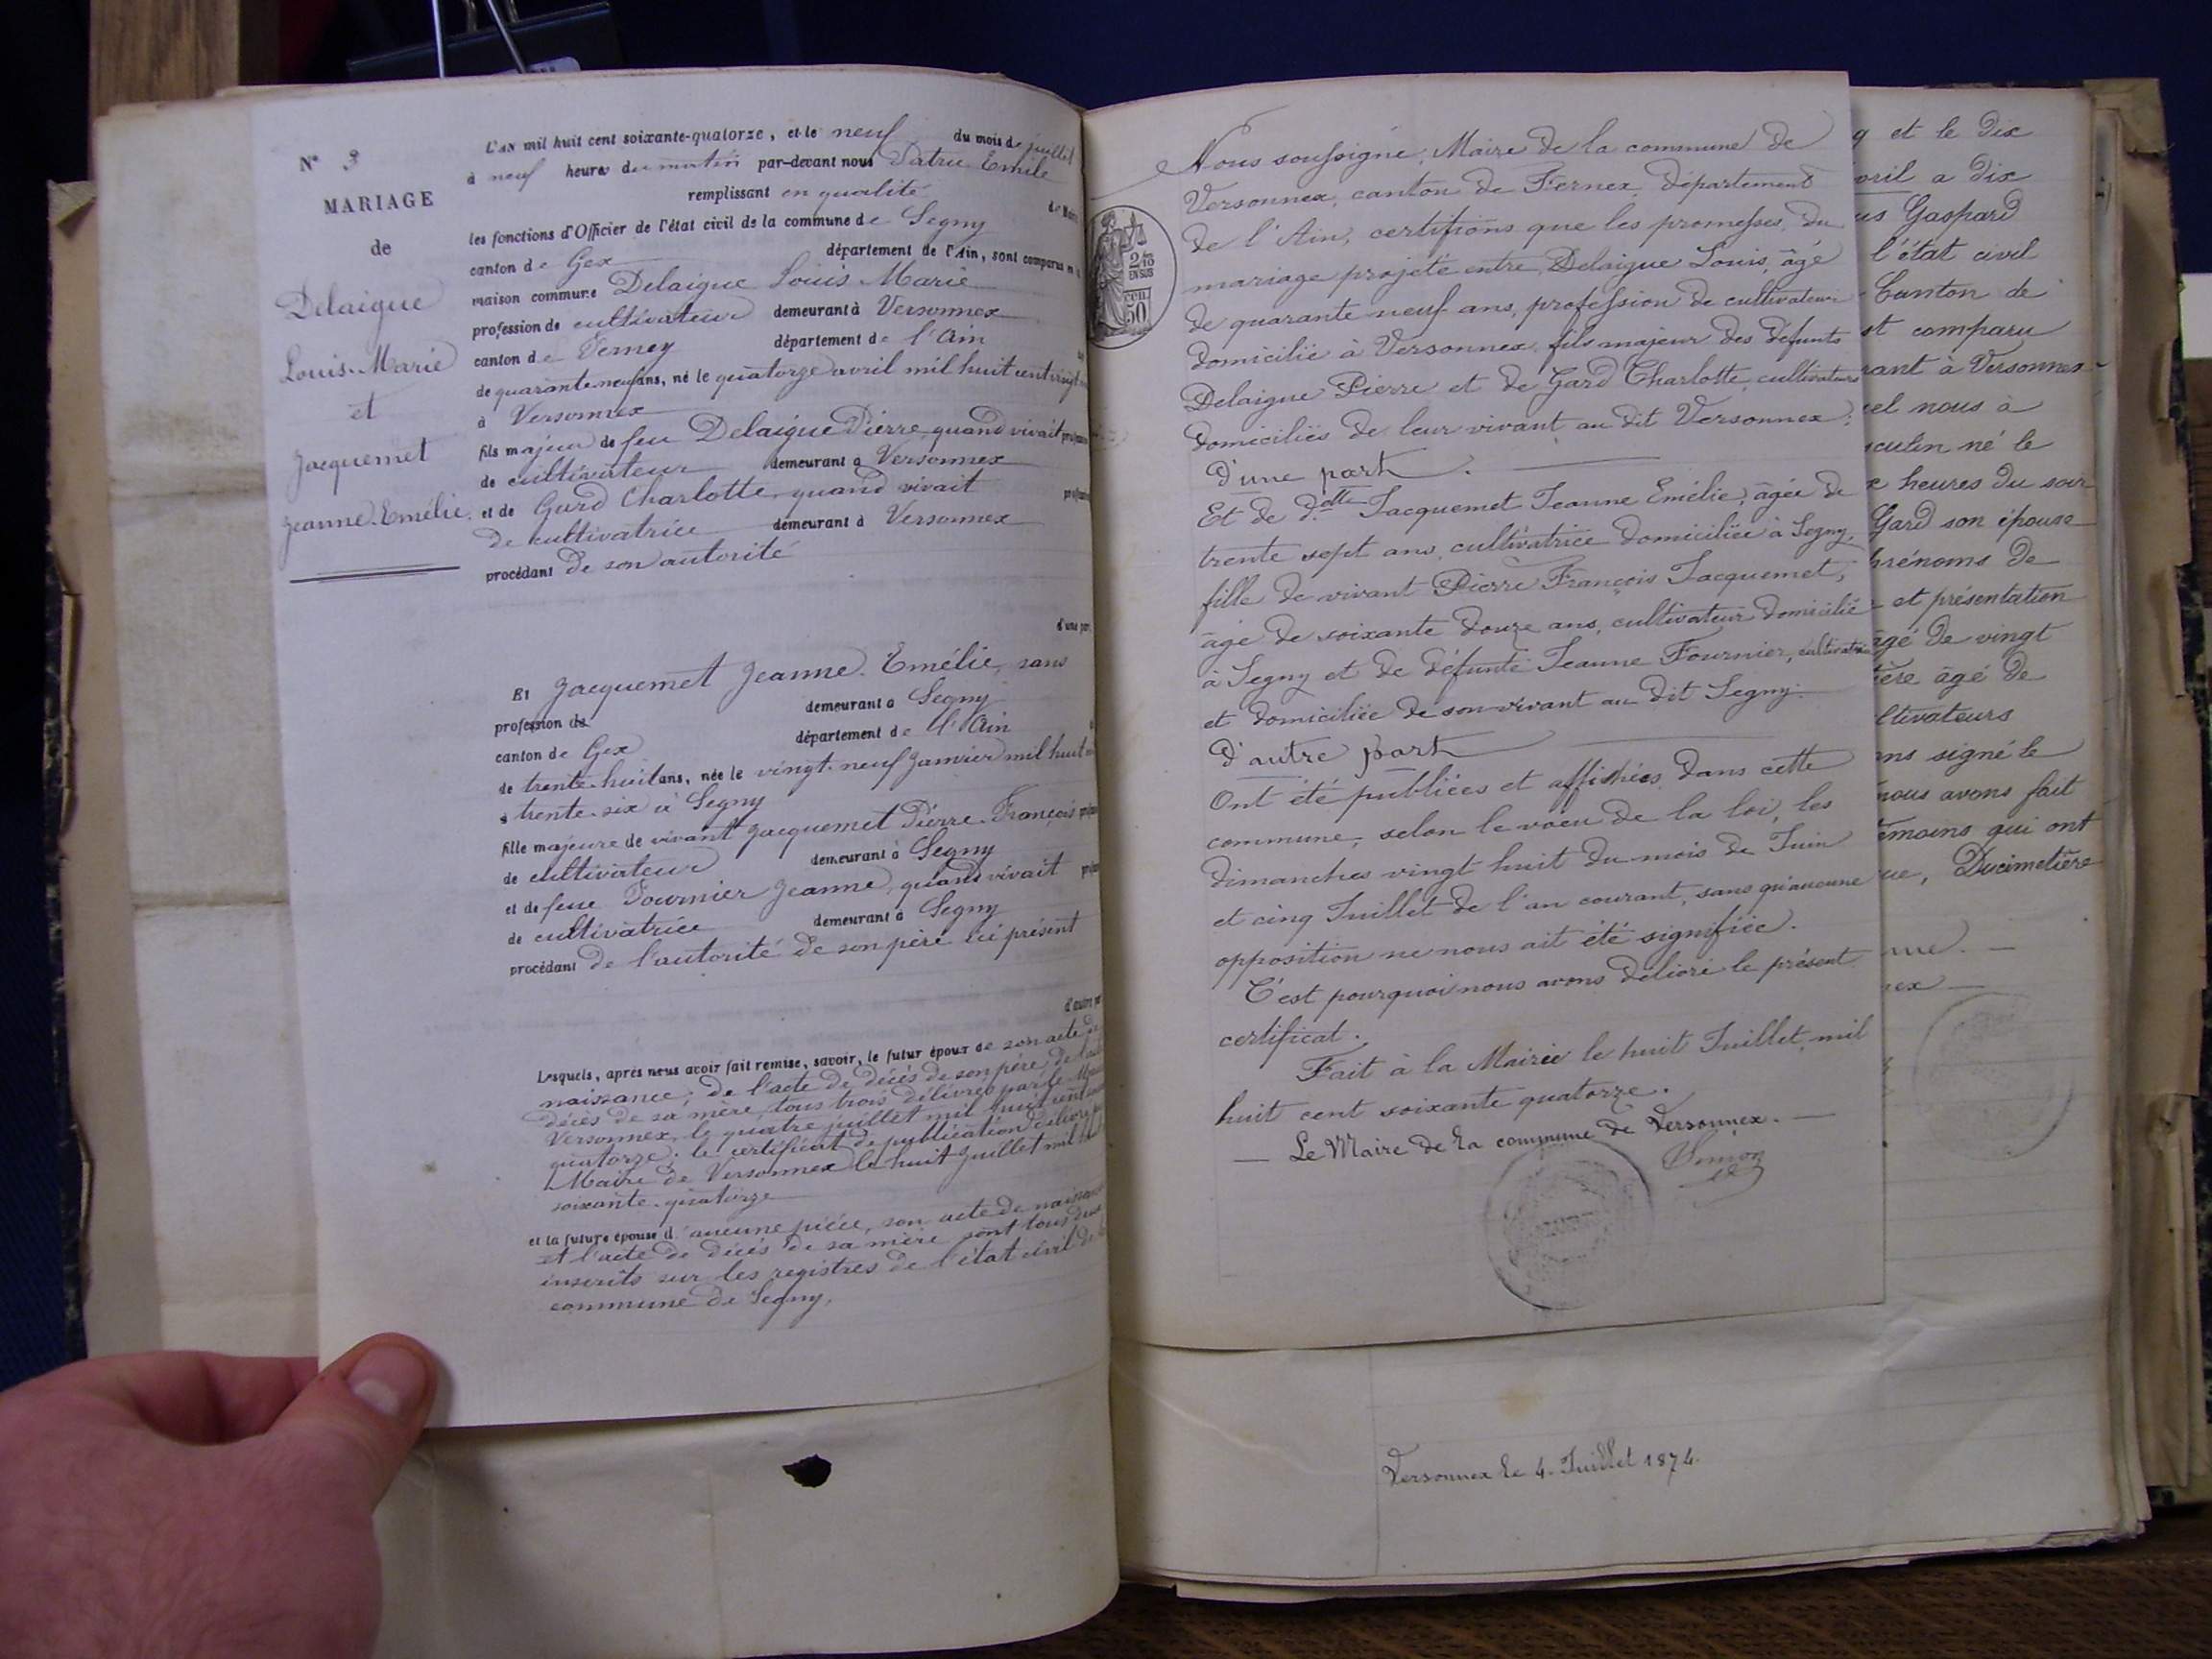 N° 3
MARIAGE
de
Delaigue
Louis-Marie
et
Jacquemet
Jeanne-Emélie.
L'AN mil huit cent soixante-quatorze, et le neuf du mois de juillet
à neuf heures du matin par-devant nous Patru Emile
remplissant en qualité de Maire
les fonctions d'Officier de l'état civil de la commune de Segny
canton de Gex département de l'Ain, sont comparus en la
maison commune Delaigue Louis Marie
profession de cultivateur demeurant à Versonnex
canton de Ferney département de l'Ain
de quarante-neuf ans, né le quatorze avril mil huit cent vingt
à Versonnex
fils majeur de feu Delaigue Pierre, quand vivait
de cultivateur demeurant à Versonnex
et de Gard Charlotte, quand vivait
de cultivatrice demeurant à Versonnex
procédant de son autorité
d'une part,
Et Jacquemet Jeanne-Emélie, sans
profession de demeurant à Segny
canton de Gex département de l'Ain
de trente-huit ans, née le vingt-neuf Janvier mil huit
à trente-six à Segny
fille majeure de vivant Jacquemet Pierre-François
de cultivateur demeurant à Segny
et de feue Fournier Jeanne, quand vivait
de cultivatrice demeurant à Segny
procédant de l'autorité de son père ici présent
Lesquels, après nous avoir fait remise, savoir, le futur époux de son acte de
naissance, de l'acte de décès de son père, de l'acte
décès de sa mère, tous trois délivrés par le Maire
Versonnex, le quatre juillet mil huit cent
quatorze; le certificat de publication délivré
Maire de Versonnex le huit Juillet mil
soixante-quatorze
et la future épouse d'aucune pièce, son acte de naissance
et l'acte de décès de sa mère sont tous deux
inscrits sur les registres de l'état civil de
commune de Segny.
Nous soussigné, Maire de la commune de
Versonnex, canton de Fernex, département
de l'Ain, certifions que les promesses, du
mariage projeté entre Delaigue Louis, âgé
de quarante neuf ans, profession de cultivateur
domicilié à Versonnex, fils majeur des défunts
Delaigue Pierre et de Gard Charlotte, cultivateurs
domiciliés de leur vivant au dit Versonnex;
D'une part.
Et de dlle Jacquemet Jeanne Emélie, âgée de
trente sept ans, cultivatrice domiciliée à Segny,
fille de vivant Pierre François Jacquemet,
âgé de soixante douze ans, cultivateur domicilié
à Segny et de défunte Jeanne Fournier, cultivatrice
et domiciliée de son vivant au dit Segny.
D'autre part
Ont été publiées et affichées dans cette
commune, selon le voeu de la loi, les
dimanches vingt huit du mois de Juin
et cinq Juillet de l'an courant, sans qu'aucune
opposition ne nous ait été signifiée.
C'est pourquoi nous avons délivré le présent
certificat.
Fait à la Mairie le huit Juillet, mil
huit cent soixante quatorze.
Le Maire de la commune de Versonnex.
2/10
EN SUS
50
et le Dix
a Dix
Gaspard
l'état civil
Canton de
comparu
à Versonnex
nous à
né le
heures du soir
Gard son épouse
prénoms de
et présentation
âgé de vingt
âgé de
signé le
nous avons fait
qui ont
Ducimetière
Versonnex le 4 Juillet 1874.